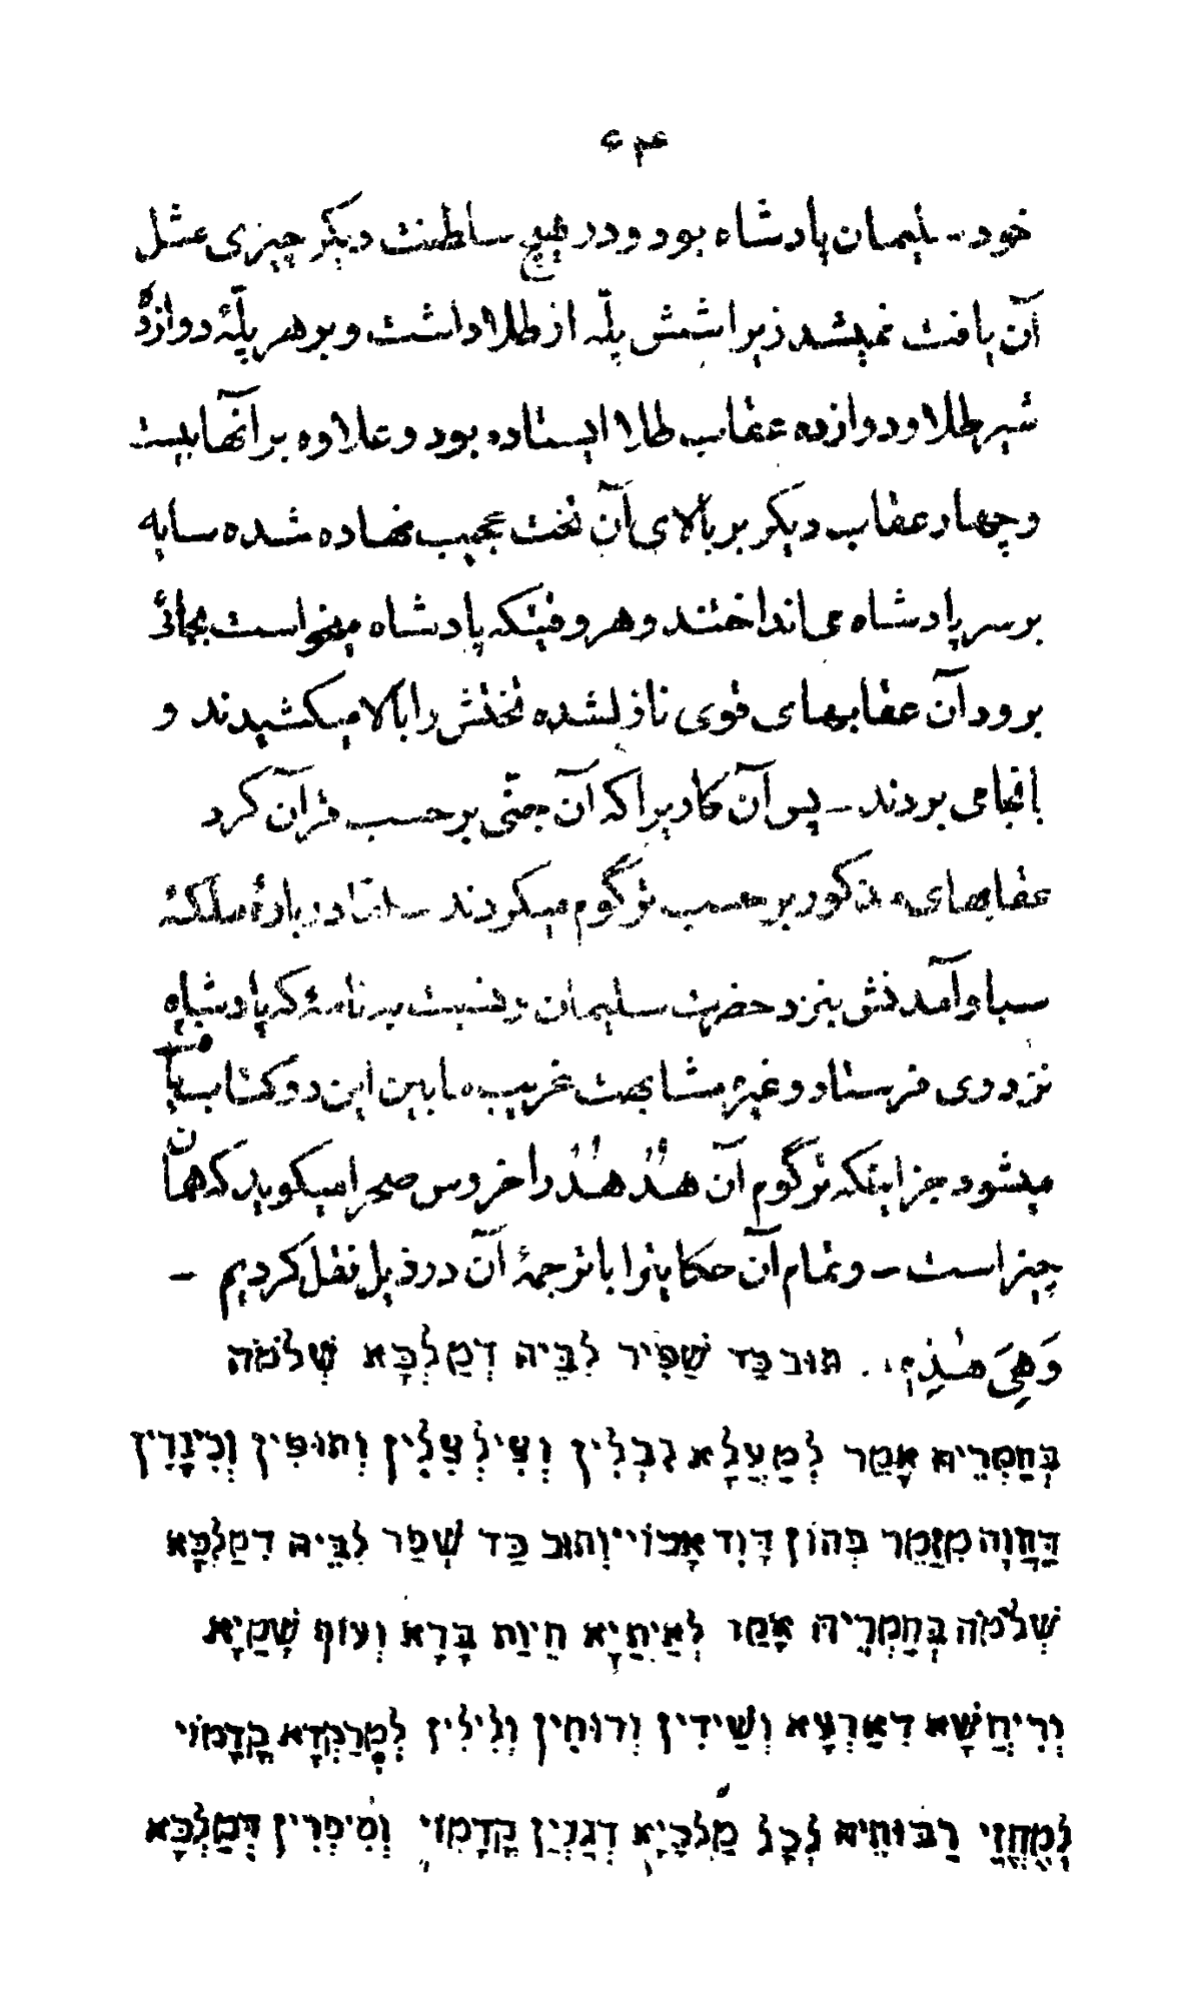 خود سلیمان پادشاه بود و در هیچ سلطنت دیگر چیزی مثل
آن یافت نمیشد زیرا شش پلّه از طلا داشت و بر هر پلّهٔ دوازده
شیر طلا و دوازده عقاب طلا ایستاده بود و علاوه بر آنها بیست
و چهار عقاب دیگر بر بالای آن تخت عجیب نهاده شده سایه
بر سر پادشاه می انداختند و هر وقتیکه پادشاه میخواست بجائی
برود آن عقابهای قوی نازلشده تختش را بالا میکشیدند و
بانجا می بردند – پس آن کاریرا که آن جنّی بر حسب قرآن کرد
عقابهای مذکور بر حسب ترگوم میکردند – امّا دربارهٔ ملکهٔ
سبا و آمدنش بنزد حضرت سلیمان و نسبت به نامهٔ که پادشاه
نزد وی فرستاد و غیره مشابهت غریب ما بین این دو کتاب پیدا
میشود جز اینکه ترگوم آن هُدهُد را خروس صحرا میگوید که همان
چیز است – و تمام آن حکایترا با ترجمهٔ آن در ذیل نقل کردیم –
وَهِیَ هٰذِهِ. תּוּב כַּד שְׁפִיר לִבֵּיהּ דְמַלְכָּא שְׁלֹמֹה
בְּחַמְרֵיהּ אָמַר לְמַעֲלָא נִבְלִין וְצִילְצְלִין וְתוּפִּין וְכִינָרִין
דַּהֲוָה מְזַמֵּר בְּהוֹן דָּוִד אֲבוֹי וְתוּב כַּד שְׁפַר לִבֵּיהּ דְמַלְכָּא
שְׁלֹמֹה בְּחַמְרֵיהּ אָמַר לְאַיְתָיָא חֵיוַת בָּרָא וְעוֹף שְׁמַיָּא
וְרִיחֲשָׁא דְאַרְעָא וְשֵׁידִין וְרוּחִין וְלִילִין לְמִרְקְדָא קֳדָמוֹי
לְמֶחֱזֵי רְבוּתֵיהּ לְכָל מַלְכַיָּא דְּגָנְיַן קֳדָמוֹי וְסִיפְרִין דְּמַלְכָּא